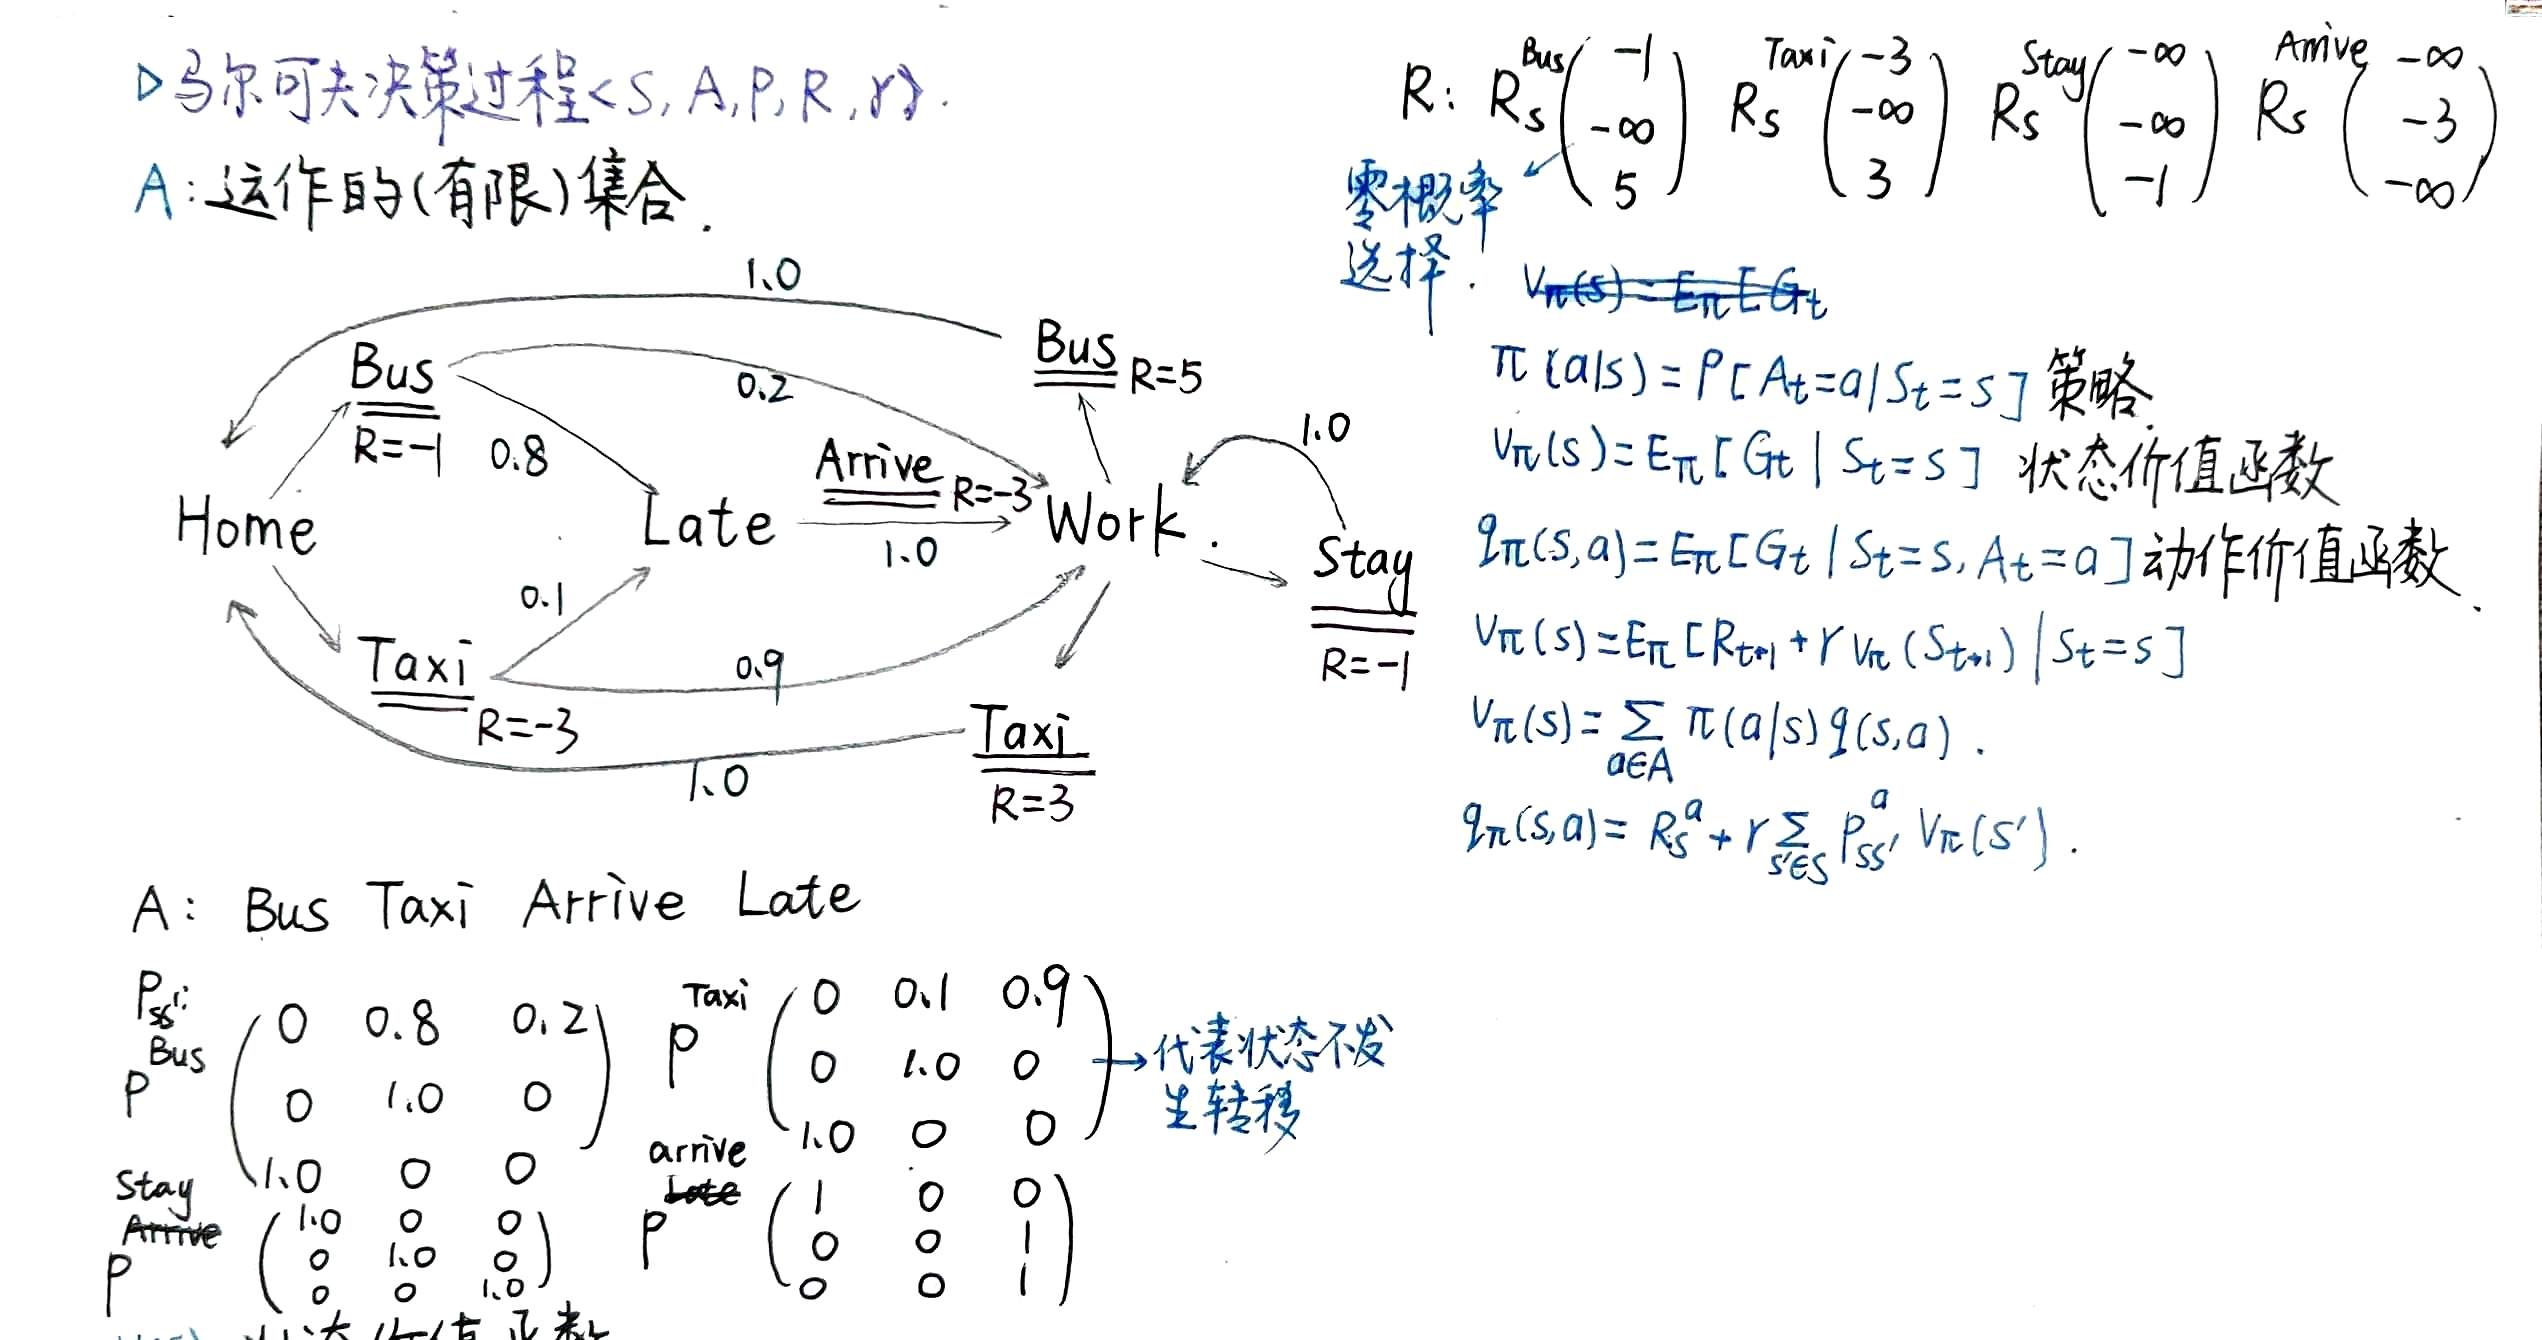 ▷马尔可夫决策过程<S,A,P,R,γ>.
A:运作的(有限)集合.
1.0
Bus
R=-1
0.2
0.8
Home
Late
Arrive R=-3
1.0
Work.
Bus R=5
1.0
Stay
R=-1
0.1
Taxi
R=-3
0.9
1.0
Taxi
R=3
A: Bus Taxi Arrive Late
Pss':
P Bus
0 0.8 0.2
0 1.0 0
1.0 0 0
P Taxi
0 0.1 0.9
0 1.0 0
1.0 0 0
→代表状态不发
生转移
Stay
Arrive
P
1.0 0 0
0 1.0 0
0 0 1.0
arrive
Late
P
1 0 0
0 0 1
0 0 1
R: Rs Bus
-1
-∞
5
Rs Taxi
-3
-∞
3
Rs Stay
-∞
-∞
-1
Rs Arrive
-∞
-3
-∞
零概率
选择.
Vπ(s)=Eπ[Gt
π(a|s)=P[At=a|St=s] 策略.
Vπ(s)=Eπ[Gt|St=s] 状态价值函数
qπ(s,a)=Eπ[Gt|St=s,At=a]动作价值函数.
Vπ(s)=Eπ[Rt+1+γVπ(St+1)|St=s]
Vπ(s)=∑a∈A π(a|s)q(s,a).
qπ(s,a)=Rs^a+γ∑s'∈S Pss'^a Vπ(s').